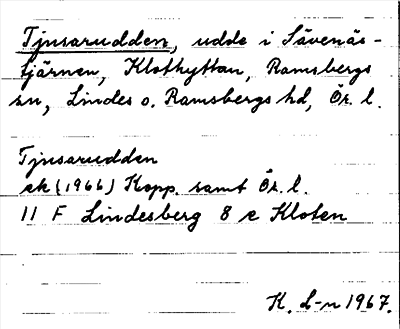 Tjusarudden, udde i Sävenäs-
tjärnen, Klothyttan, Ramsbergs
sn, Lindes o. Ramsbergs hd, Ör. l.
Tjusarudden
ek (1966) Kopp. samt Ör. l.
11 F Lindesberg 8 e Kloten
K. L-n 1967.